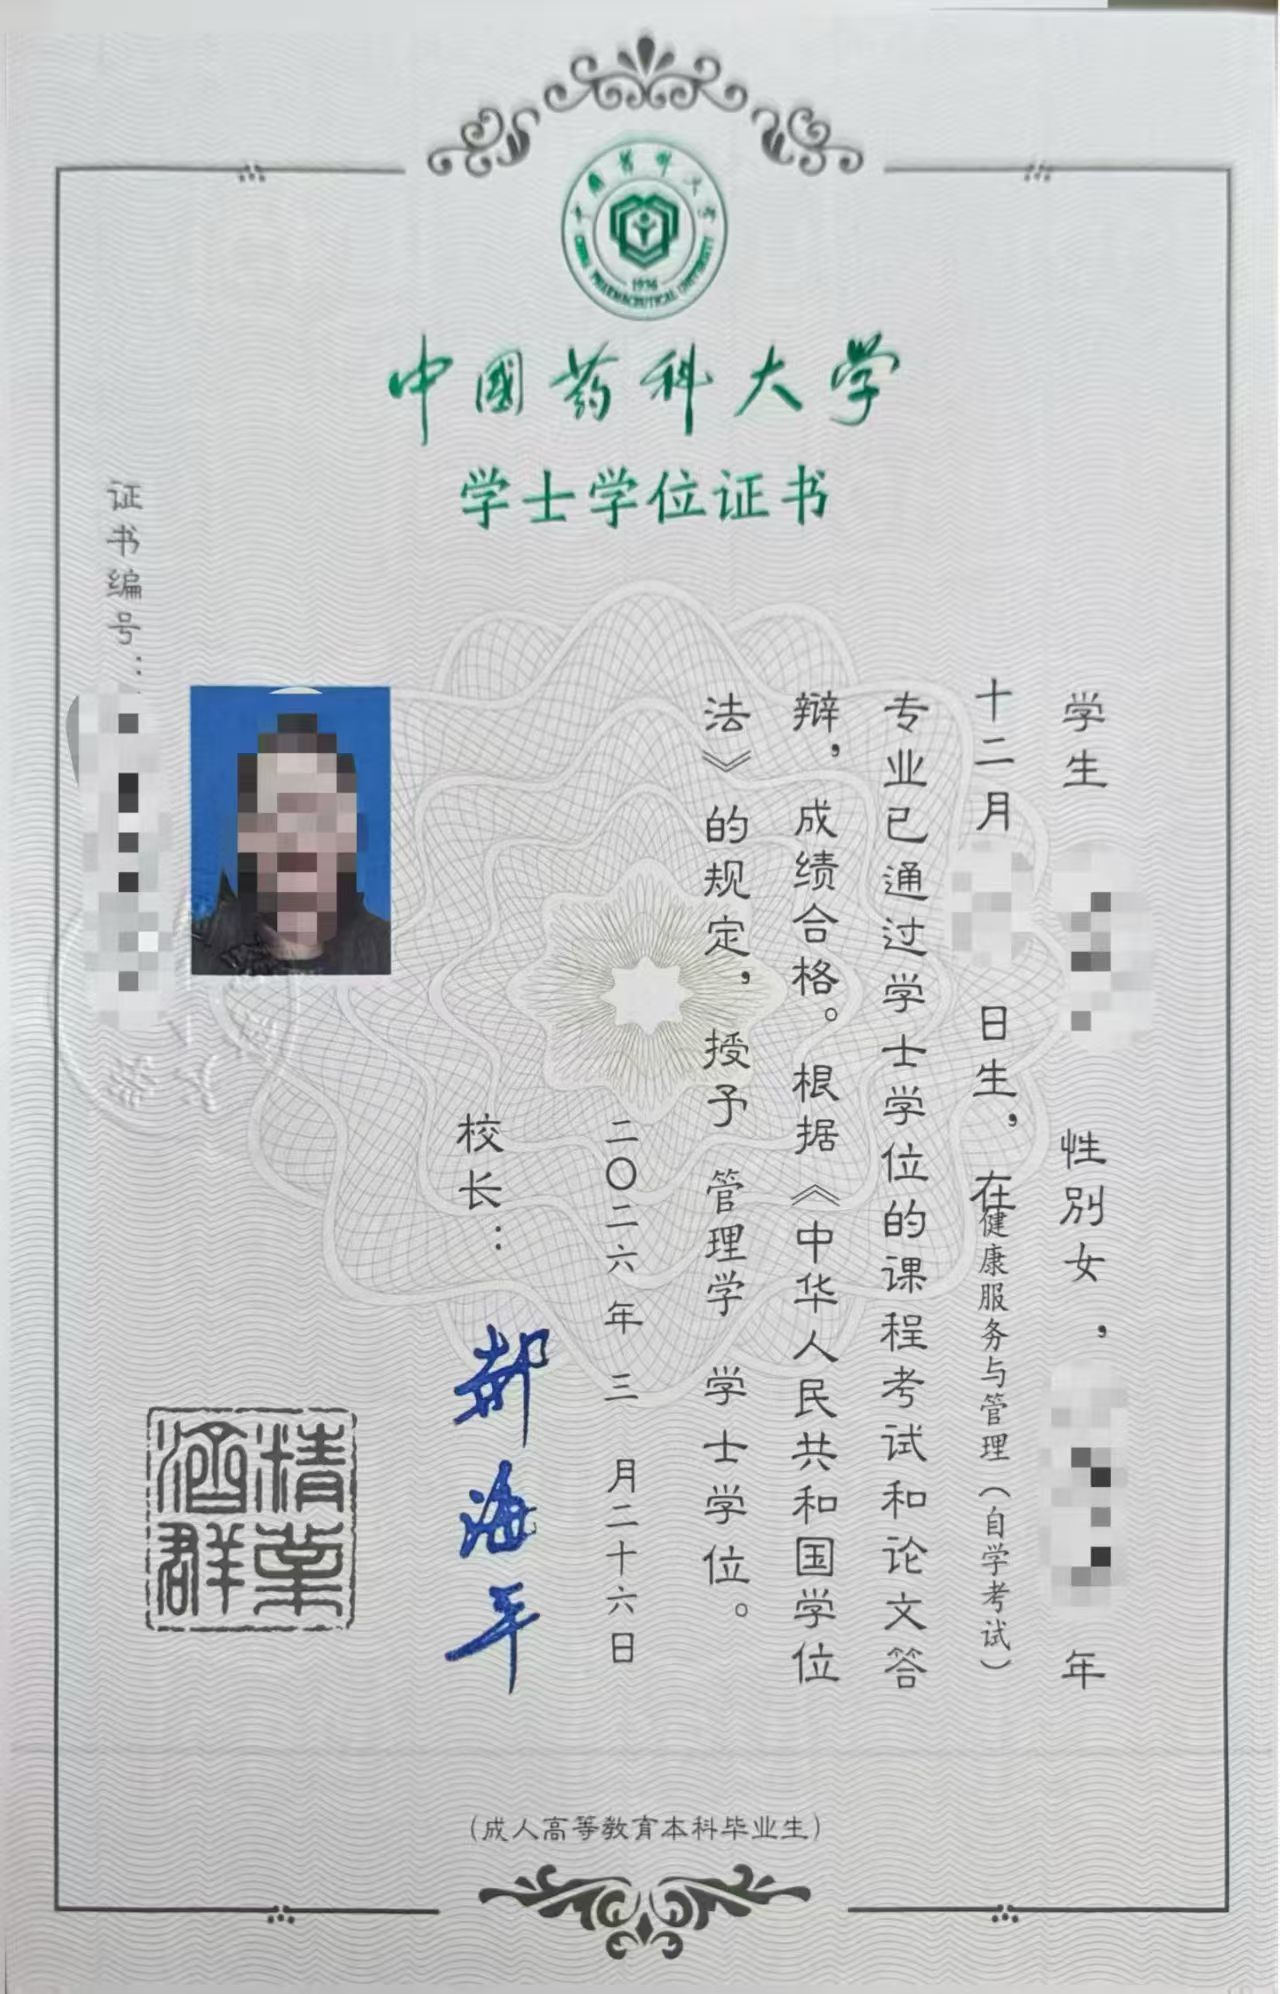 中國药科大学
CHINA PHARMACEUTICAL UNIVERSITY
1936
中國药科大学
学士学位证书
证书编号：
学生 性别女， 年
十二月 日生，在健康服务与管理（自学考试）
专业已通过学士学位的课程考试和论文答
辩，成绩合格。根据《中华人民共和国学位
法》的规定，授予 管理学 学士学位。
二〇二六年 三 月二十六日
校长：
郝海平
精业
济群
（成人高等教育本科毕业生）